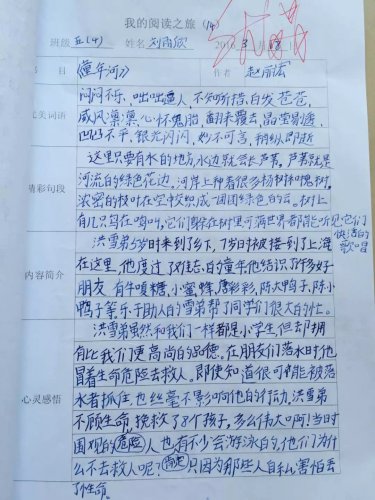 我的阅读之旅 (14)
班级 五(4) 姓名 刘雨欣 2016 3 18
书 目 《童年河》 作者 赵丽宏
优美词语
闷闷不乐，咄咄逼人，不知所措，白发苍苍，
威风凛凛，心怀鬼胎，翻来覆去，晶莹易
凹凸不平，银光闪闪，妙不可言，稍纵即逝
精彩句段
这里只要有水的地方，水边就会长芦苇。芦苇就是
河流的绿色花边。河岸上种着很多杨树和槐树。
浓密的枝叶在空中交织成一团团绿色的云。树上
有几只鸟在鸣叫，它们躲在树里可满世界都能听见它们
快活的
歌唱
内容简介
洪雪弟5岁时来到了乡下，7岁时被接到了上海
在这里，他度过了难忘的童年他结识了许多好
朋友，有牛嗅糖，小蜜蜂，唐彩彩，陈大鸭子，陈小
鸭子等，乐于助人的雪弟帮了同学们很大的忙。
心灵感悟
洪雪弟虽然和我们一样都是小学生，但却拥
有比我们更高尚的品德。在朋友们落水时他
冒着生命危险去救人。即使知道很可能被落
水者抓住也丝毫不影响他的行动，洪雪弟
不顾生命，挽救了8个孩子，多么伟大啊！当时
围观的 人也有不少会游泳的，他们为什
么不去救人呢？ 只因为那些人自私害怕丢
了性命。